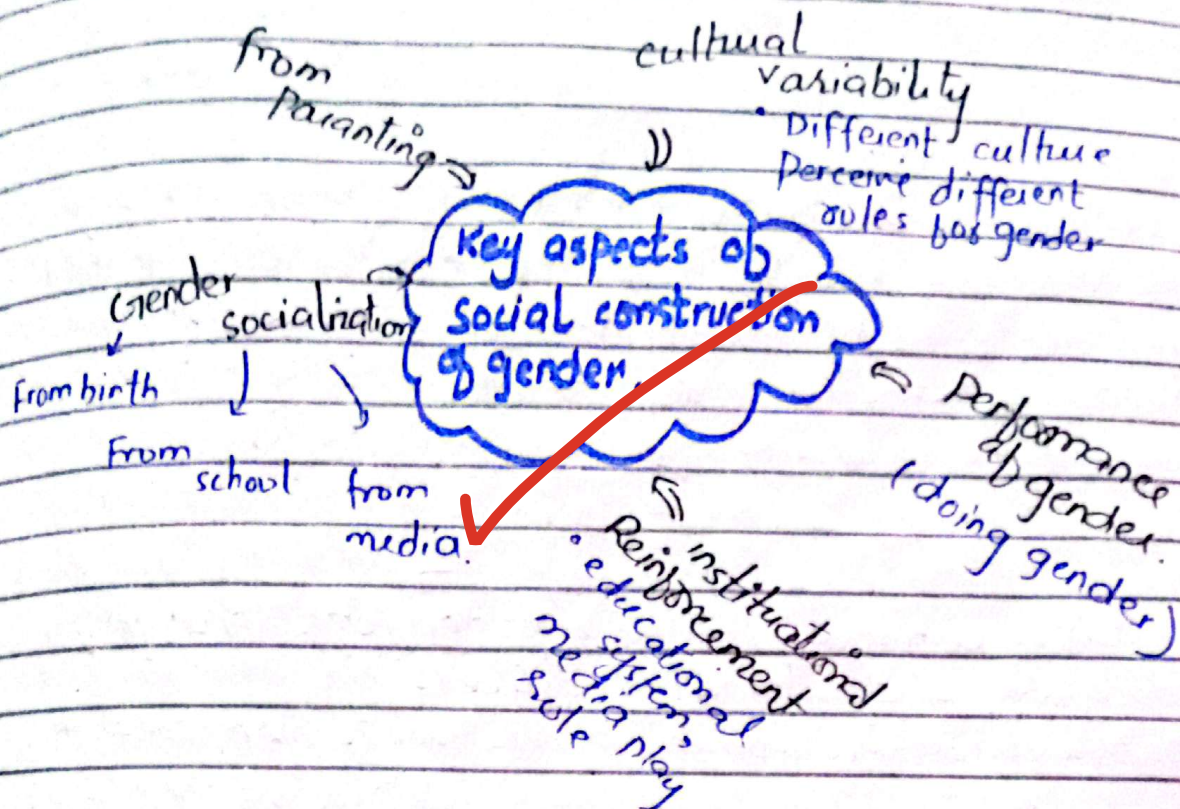 from
Paranting
cultural
variability
• Different culture
perceive different
rules for gender
Key aspects of
social construction
of gender.
Gender
socialization
From birth
From
school
from
media.
Performance
of gender.
(doing gender)
institutional
Reinforcement
• educational
system,
media
role play